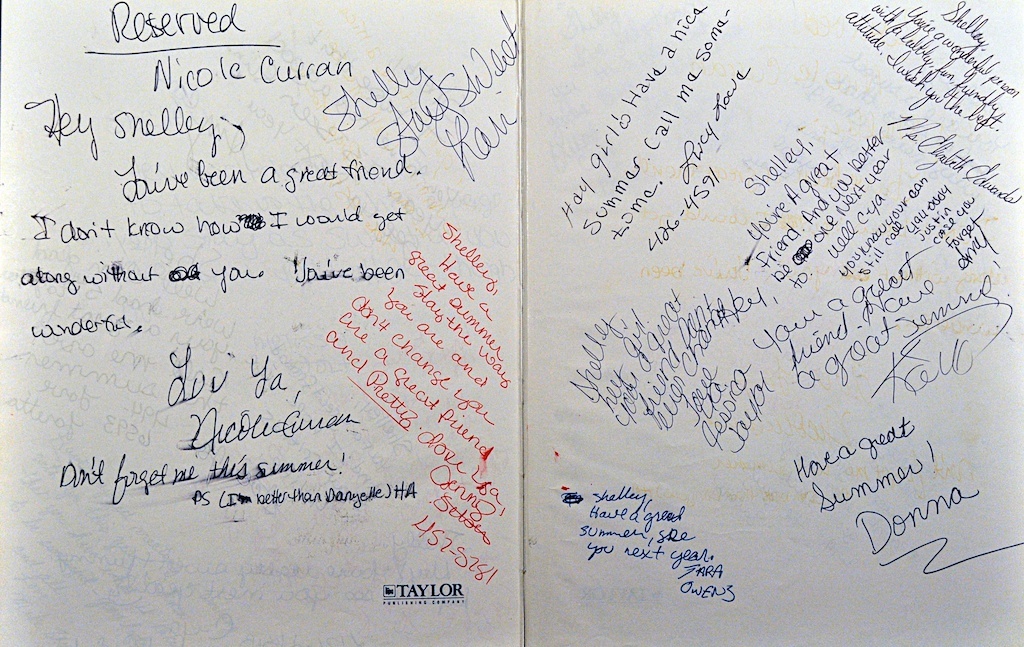 Reserved
Nicole Curran
Hey Shelley,
You've been a great friend.
I don't know how I would get
along without you. You've been
wonderful.
Luv Ya,
Nicole Curran
Don't forget me this summer!
PS (I'm better than Danyelle) HA
Shelley
Stay Sweet
Shelley,
Have a
great summer
Stay the way
you are and
don't change you
are a great friend
and Pretty. Love Ya,
Jenny
457-5281
TAYLOR
PUBLISHING COMPANY
Hay girl! Have a nice
Summer. Call me some-
time.
426-4591
Shelley,
You're a wonderful person
with a bubbly, fun, friendly
attitude. I wish you the best.
Ms. Elizabeth Edwards
Shelley,
You're A great
Friend. And you better
be one Next year
to. Well Cya
Shelley
Hey Girl
great
friend
Love
Ya
Jessica
You are a great
friend. Have
a great summer!
Kell
Have a great
Summer!
Donna
Shelley,
Have a great
summer, see
you next year.
TARA
OWENS